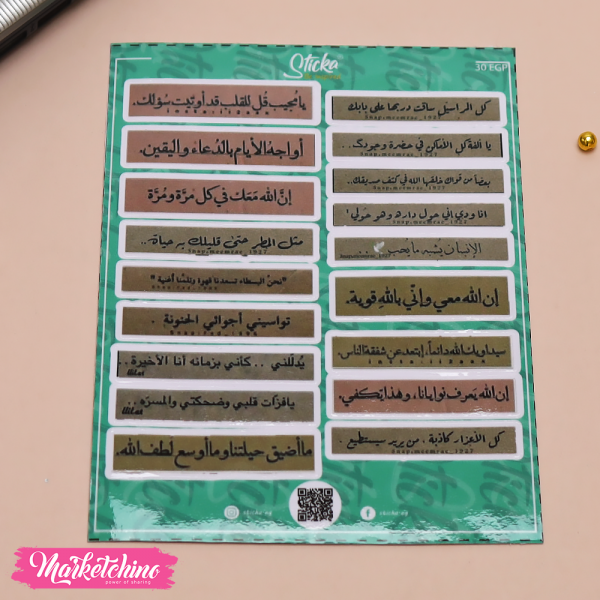 Sticka
30 EGP
يا مُجيب قُل للقلب قد أوتيت سُؤلك.
أواجهُ الأيام بالدُعاء واليقين.
إنَّ الله مَعَك في كل مرَّة ومُرَّة
مثل المطر حتىٰ قليلك به حياة..
"نحنُ البسطاء تسعدنا قهوة وتلمُّنا أغنية"
تواسيني أجوائي الحنونة .
يُدلّلني .. كأني بزمانه أنا الأخيرة ..
يافزّات قلبي وضحكتي والمسرّه ..
ما أضيق حيلتنا وما أوسع لُطف الله.
كل المراسيل ساقت دربها على بابك
يا لقلة كل الأماكن في حضرة وجودك...
بعضاً من قواك خلقها الله في كتف صديقك..
انا ودي اللي حول داره وهو حَولي!
الإنسان يشبه ما يحب . . .
إن الله معي وإنّي بالله قوية.
سيداويك الله دائماً، إبتعد عن شفقة الناس
إن الله يَعرف نوايانا، وهذا يَكفي.
كل الأعذار كاذبة ، من يريد سيستطيع .
Marketchino
power of sharing